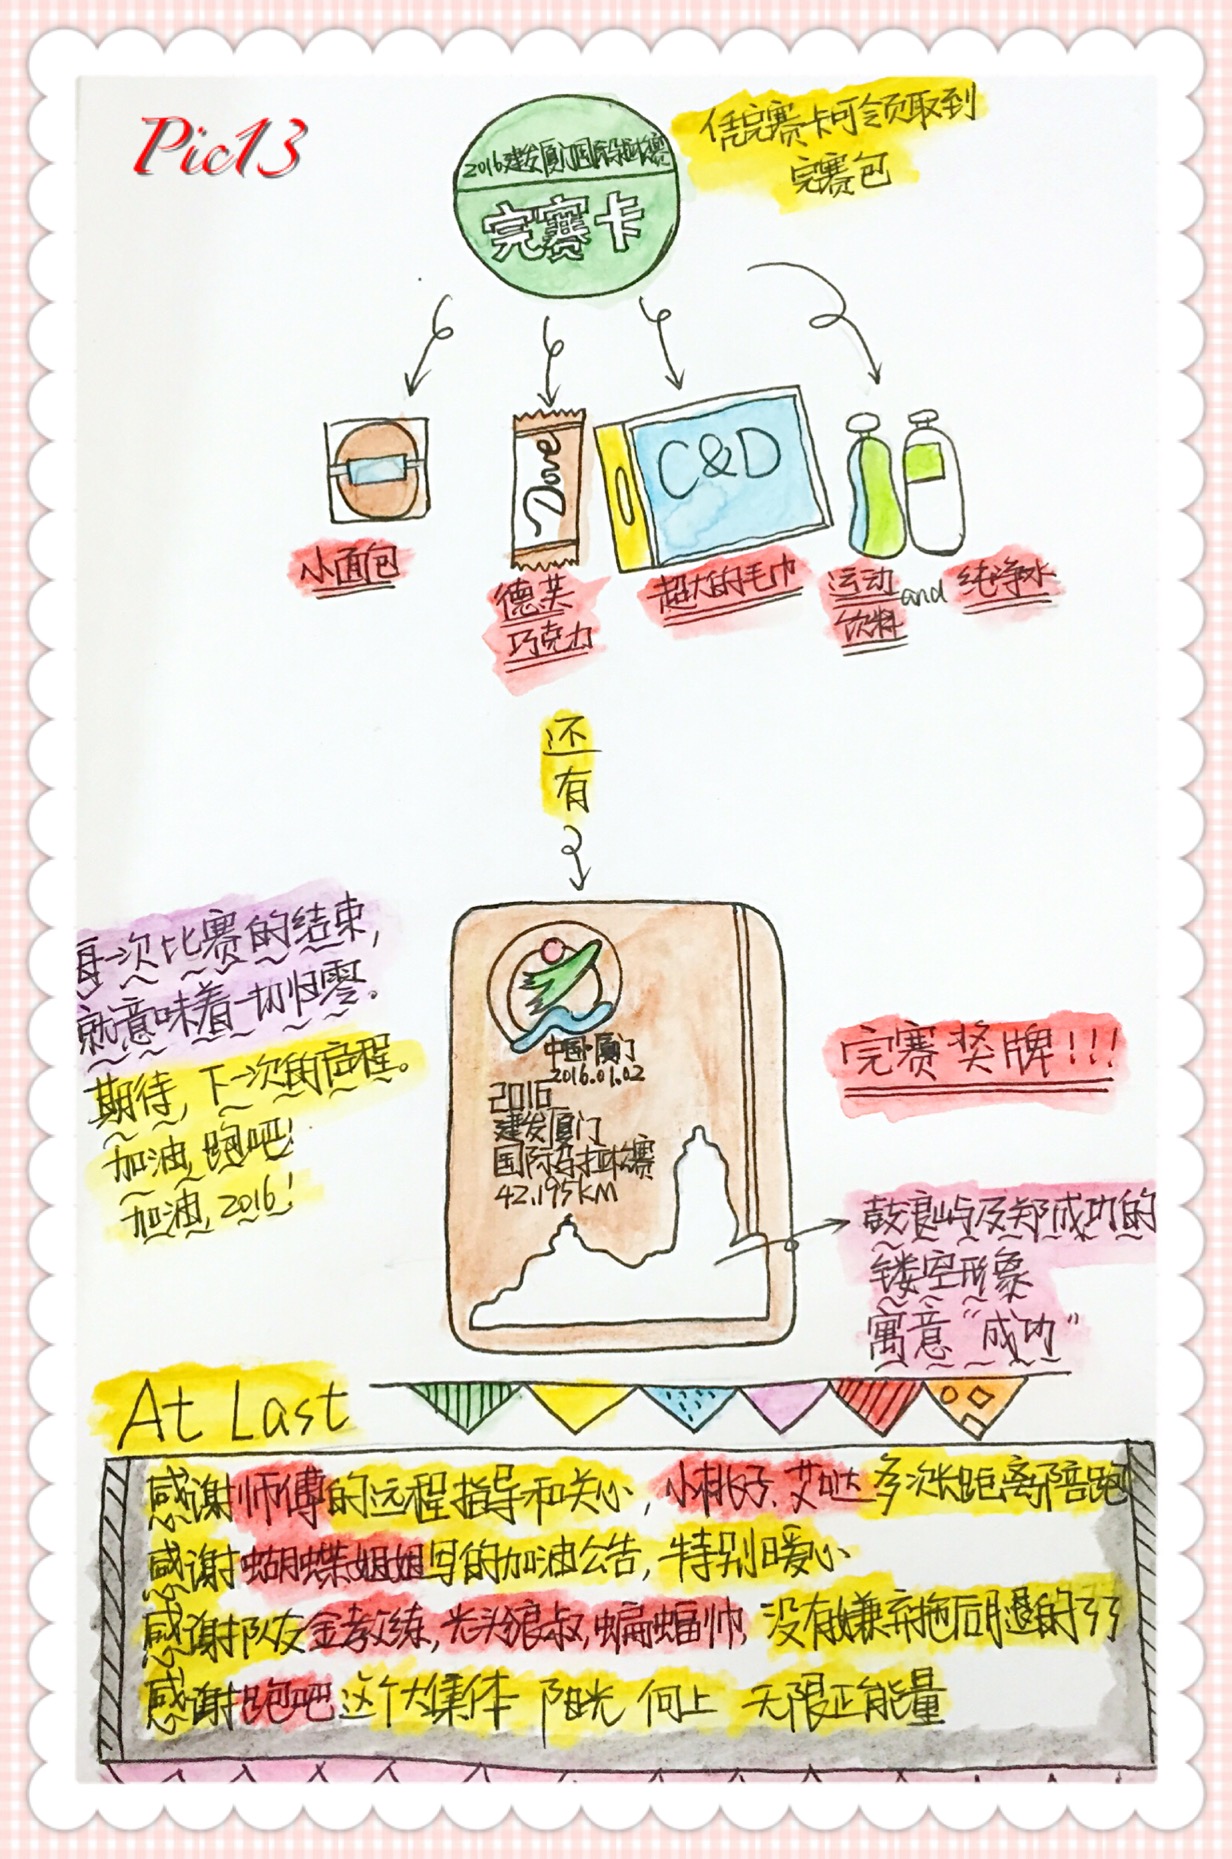 Pic13
2016建发厦门国际马拉松赛
完赛卡
凭完赛卡可领取到
完赛包
小面包
Dove
德芙
巧克力
C&D
超大的毛巾
运动
饮料
and
纯净水
还
有
每一次比赛的结束,
就意味着一切归零。
期待,下一次的启程。
加油,跑吧!
加油,2016!
中国·厦门
2016.01.02
2016
建发厦门
国际马拉松赛
42.195KM
完赛奖牌!!!
鼓浪屿及郑成功的
镂空形象
寓意“成功”
At Last
感谢师傅的远程指导和关心,小桃子、艾哒多次长距离陪跑
感谢蝴蝶姐姐写的加油公告,特别暖心
感谢队友金教练,光头狼叔,蝙蝠帅,没有嫌弃拖后腿的
感谢跑吧这个大集体 阳光 向上 无限正能量